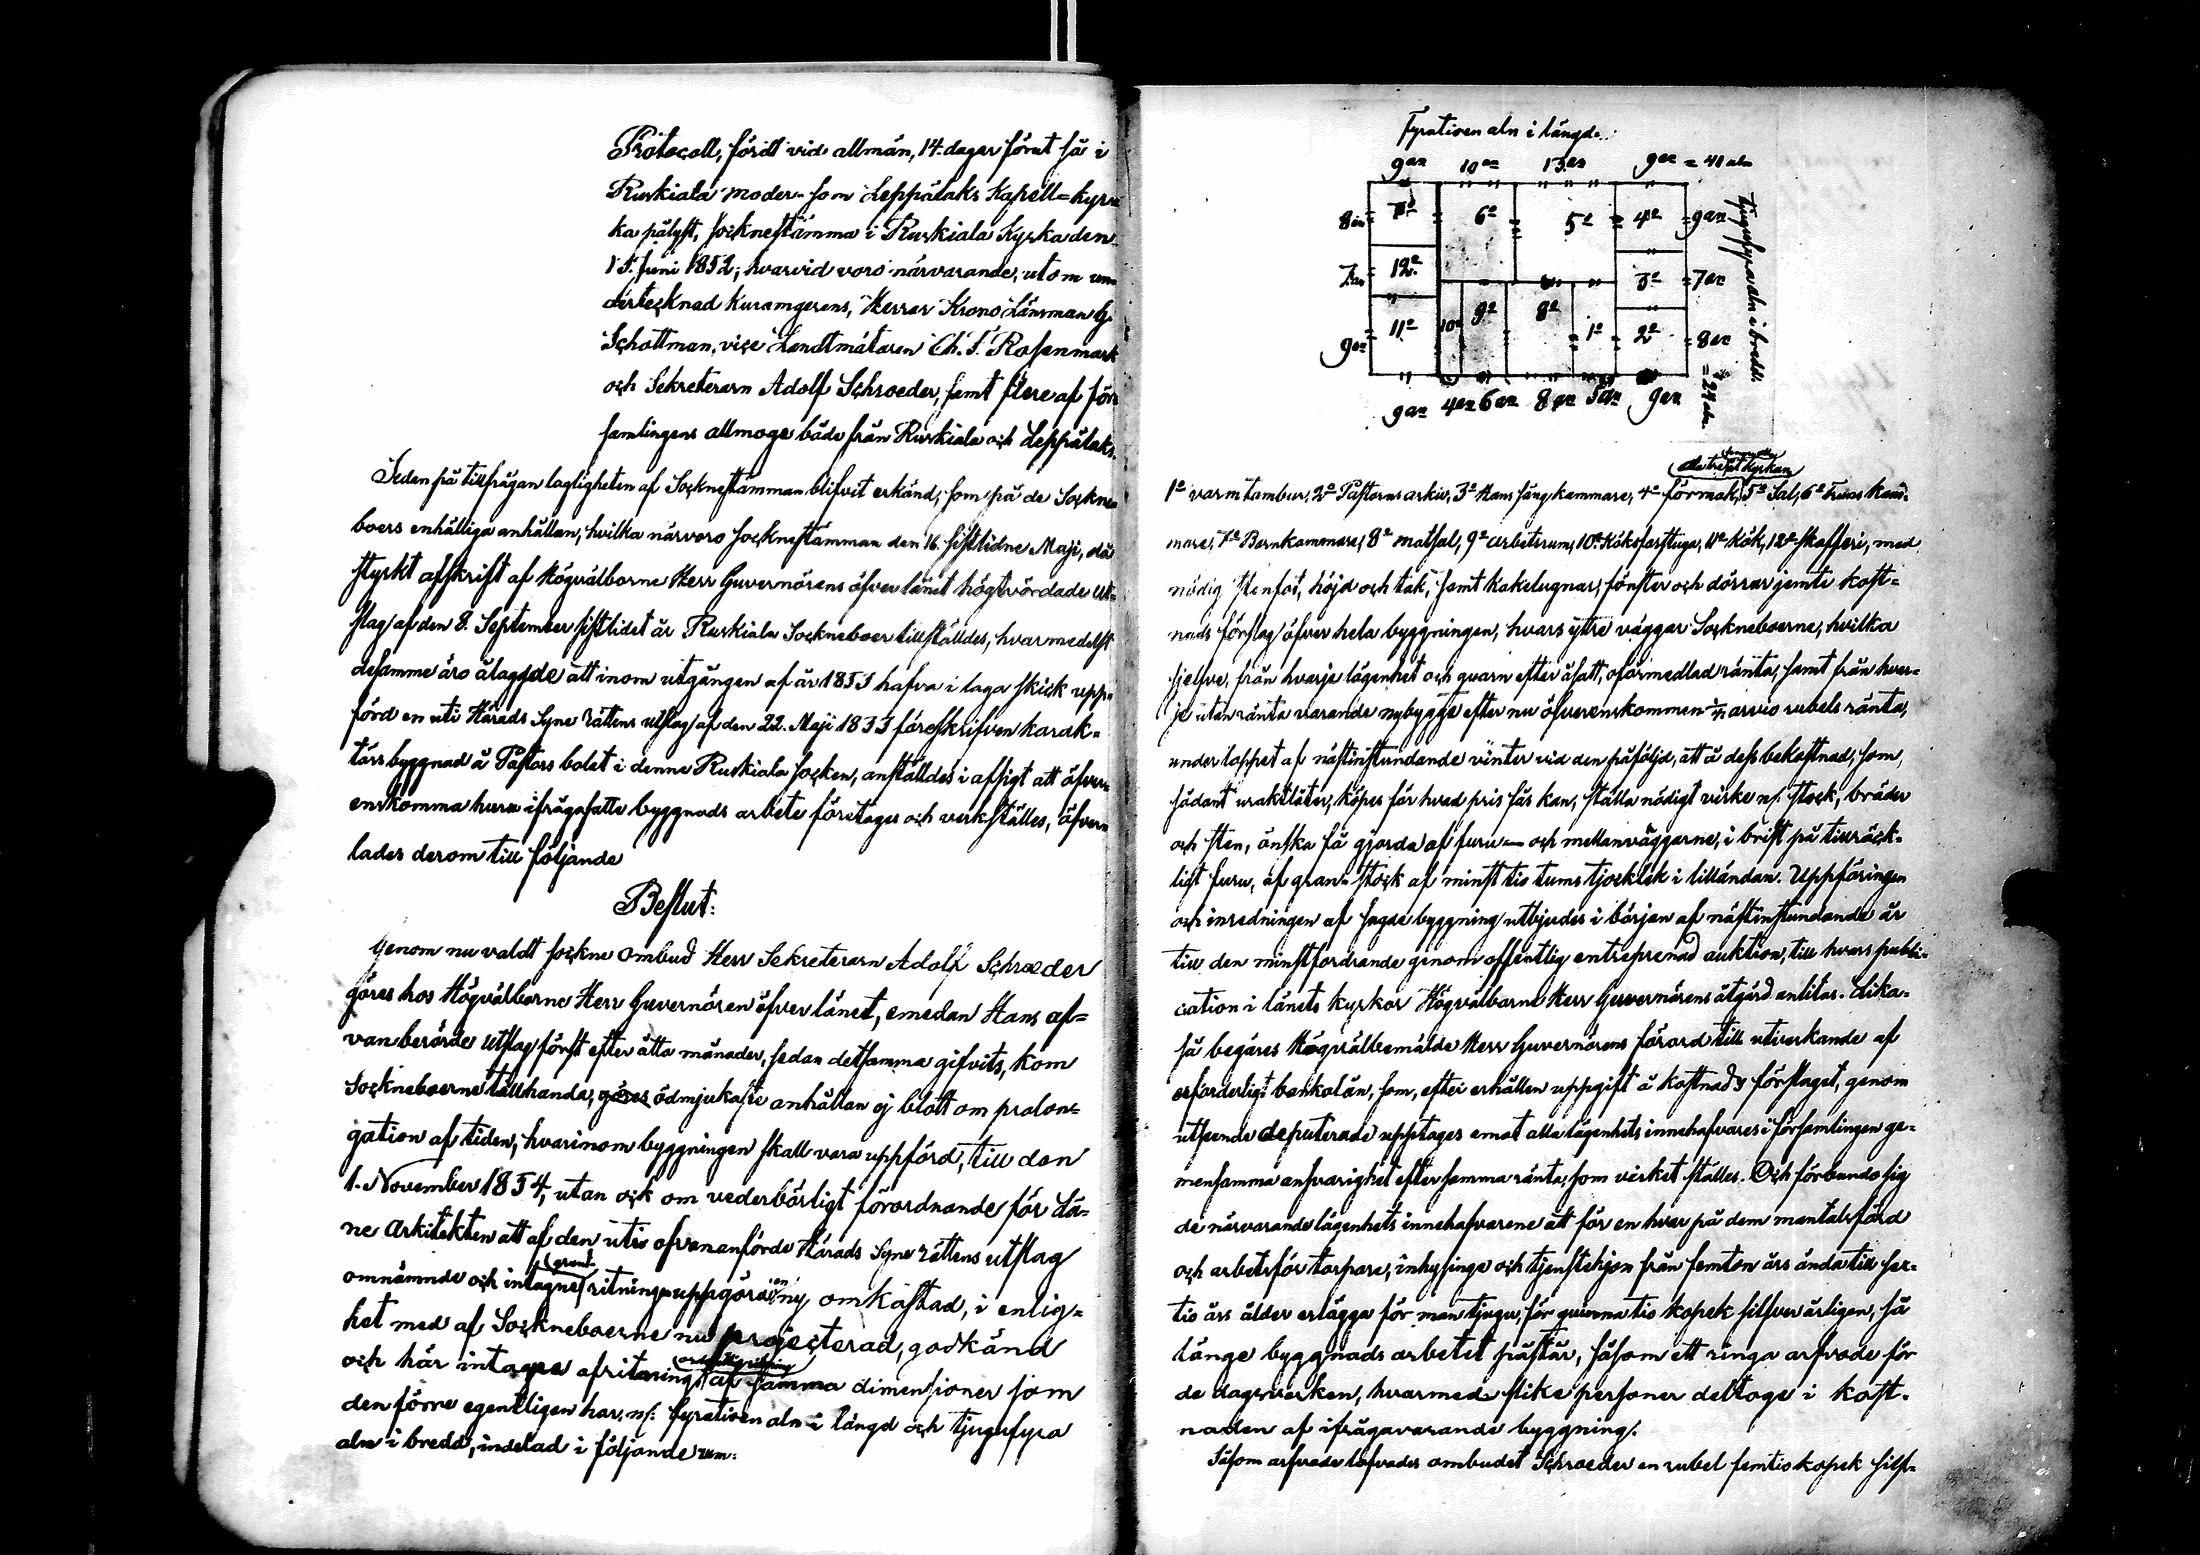 Protocoll, fördt vid allmän, 14. dagar förut så i
Ruskiala moder- som Leppälaks Kapell-kyrc
ka pålyst, socknestämma i Ruskiala Kyrka den
15. Juni 1852; hvarvid voro närvarande, utom un-
dertecknad kuramgerens, Herrar Krono Länsman G.
Schottman, vice Landtmätaren Ch. F. Rosenmark
och Sekreterarn Adolf Schroeder, samt flere af för-
samlingens allmoge både från Ruskiala och Leppälaks.
Seden på tillfrågan lagligheten af Socknestämman blifvit erkänd, som på de Sockne
boers enhälliga anhållan, hvilka närvoro sockneståmman den 16. sistlidne Maji, då
styrkt afskrift af Högvälborne Herr Guvernörens öfver länet högtvördade Ut-
slag af den 8. September sistlidet år Ruskiala Sockneboer tillställdes, hvarmedelst
desamme äro ålagde att inom utgången af år 1853 hafva i laga skick upp-
förd en uti Härads Syne Rättens utslag af den 22. Maji 1833 föreskrifven karak-
tärsbyggnad å Pastorsbolet i denne Ruskiala socken, anställdes i afsigt att öfver
enskomma huru ifrågasatta byggnads arbete företages och verkställes, öfver
lades derom till följande
Beslut:
Genom nu valdt sockne ombud Herr Sekreterarn Adolf Schroeder
göres hos Högvälborne Herr Guvernören öfver länet, emedan Hans of-
van berörde Utslag först efter åtta månader, sedan detsamma gifvits, kom
Sockneboerne tillhanda, göres ödmjukaste anhållan ej blott om prolon-
gation af tiden, hvarinom byggningen skall vara uppförd, till den
1. November 1854, utan ock om vederbörligt förordnande för Lä-
ne Arkitekten att af den uti ofvananförde Härads Syne Rättens utslag
grund-
omnämnde och intagne ritning uppgöra en ny omkastad, i enlig-
het med af Sockneboerne nu projecterad, godkänd
och här intagne afritning af samma dimensioner som
den förre egentligen har, nf: fyratioen aln i längd och tjugufyra
aln i bredd, indelad i följande rum:
Fyratioen aln i längd.
9 an 10 an 13 an 9 an = 41 aln
8 an 7° 6° 5° 4° 9 an
7 an 12° 3° 7 an
9 an 11° 10° 9° 8° 1° 2° 8 an
= 24 aln
Tjugufyra aln i bredd.
9 an 4 an 6 an 8 an 5 an 9 an
1° varm tambur, 2° Pastorns arkiv, 3° Hans sängkammare, 4° förmak, 5° Sal, 6° Fruns kam-
mare, 7° Barnkammare, 8° matsal, 9° arbetsrum, 10° Köksfarstuga, 11° Kök, 12° skafferi, med
nödig stenfot, höjd och tak, samt kakelugnar, fönster och dörrar jemte kost-
nads förslag öfver hela byggningen, hvars yttre väggar Sockneboerne, hvilka
sjelfve, från hvarje lägenhet och qvarn efter åsatt, oförmedlad ränta, samt från hvar-
je utan ränta varande nybygge efter nu öfverenskommen arvio rubels ränta,
under loppet af nästinstundande vinter vid den påföljd, att å dess bekostnad, som
sådant uraktlåter, köpes för hvad pris fås kan, ställa nödigt virke nf. stock, bräder
och sten, önska få gjorda af furu- och mellanväggarne, i brist på tillräck-
ligt furu, af gran- stock af minst tio tums tjocklek i lilländan. Uppföringen
och inredningen af sagde byggning utbjudes i början af nästinstundande år
till den minstfordrande genom offentlig entreprenad auktion, till hvars publi-
cation i länets kyrkor Högvälborne Herr Guvernörens åtgärd anlitas. Lika-
så begäres Högvälbemälde Herr Guvernörens förord till utverkande af
erforderligt bankolån, som, efter erhållen uppgift å kostnads förslaget, genom
utseende deputerade upptages emot alla lägenhets innehafvares i församlingen ge-
mensamma ansvarighet efter samma ränta, som virket ställes. Och förbundo sig
de närvarande lägenhets innehafvarene att för en hvar på dem mantalsförd
och arbetsför torpare, inhysinge och tjenstehjon från femton års ända till sex-
tio års ålder erlägga för man tjugu, för qvinna tio kopek silfver årligen, så
länge byggnads arbetet påstår, såsom ett ringa arfvode för
de dagsverken, hvarmed slike personer deltoge i kost-
naden af ifrågavarande byggning.
Såsom arfvode lofvades ombudet Schroeder en rubel femtio kopek silf-